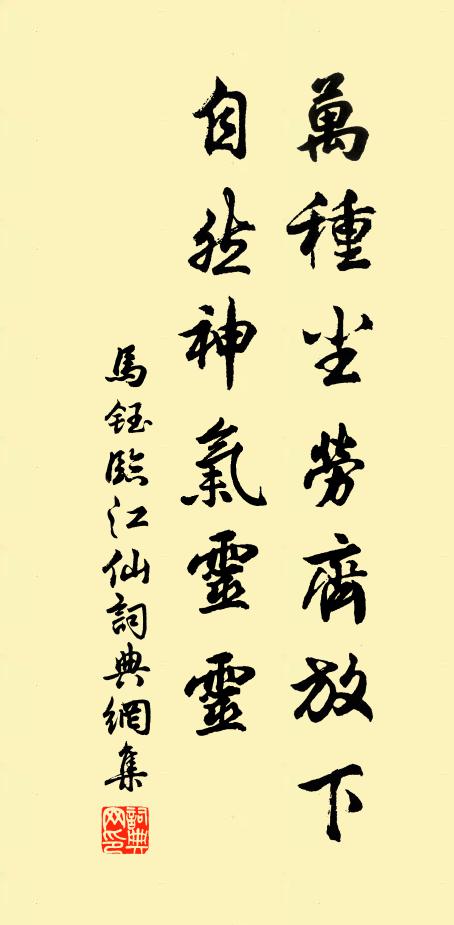 萬種尘勞齊放下
自然神氣靈靈
馬鈺臨江仙詞典網集
詞典网印